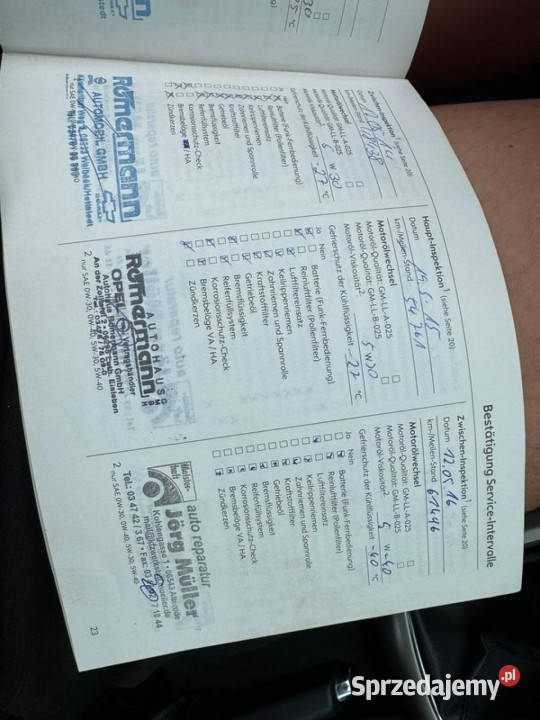 Bestätigung Service-Intervalle
Zwischen-Inspektion¹ (siehe Seite 20)
Datum
km-/Meilen-Stand
Motorölwechsel
Motoröl-Qualität: GM-LL-A-025
Motoröl-Qualität: GM-LL-B-025
Motoröl-Viskosität²
6 W 30
Gefrierschutz der Kühlflüssigkeit -27 °C
Ja Nein
Batterie (Funk-Fernbedienung)
Reinluftfilter (Pollenfilter)
Luftfiltereinsatz
Keilrippenriemen
Zahnriemen und Spannrolle
Kraftstoffilter
Getriebeöl
Bremsflüssigkeit
Reifenfüllsystem
Korrosionsschutz-Check
Bremsbeläge VA / HA
Zündkerzen
Römermann
AUTOMOBIL GMBH
Haupt-Inspektion¹ (siehe Seite 20)
Datum 19.5.15
km-/Meilen-Stand 54761
Motorölwechsel
Motoröl-Qualität: GM-LL-A-025
Motoröl-Qualität: GM-LL-B-025
Motoröl-Viskosität² 5 W 30
Gefrierschutz der Kühlflüssigkeit -27 °C
Ja Nein
Batterie (Funk-Fernbedienung)
Reinluftfilter (Pollenfilter)
Luftfiltereinsatz
Keilrippenriemen
Zahnriemen und Spannrolle
Kraftstoffilter
Getriebeöl
Bremsflüssigkeit
Reifenfüllsystem
Korrosionsschutz-Check
Bremsbeläge VA / HA
Zündkerzen
AUTOHAUS
Römermann
GMBH
OPEL Vertragshändler
Autohaus Römermann GmbH
2 nur SAE 0W-30, 0W-40, 5W-30, 5W-40
Zwischen-Inspektion¹ (siehe Seite 20)
Datum 12.05.16
km-/Meilen-Stand 61496
Motorölwechsel
Motoröl-Qualität: GM-LL-A-025
Motoröl-Qualität: GM-LL-B-025
Motoröl-Viskosität² 5 W-40
Gefrierschutz der Kühlflüssigkeit -40 °C
Ja Nein
Batterie (Funk-Fernbedienung)
Reinluftfilter (Pollenfilter)
Luftfiltereinsatz
Keilrippenriemen
Zahnriemen und Spannrolle
Kraftstoffilter
Getriebeöl
Bremsflüssigkeit
Reifenfüllsystem
Korrosionsschutz-Check
Bremsbeläge VA / HA
Zündkerzen
Meisterhaft
auto reparatur
Jörg Müller
Kohlengasse 1 • 06543 Alterode
Tel.: 03 47 42 / 3 67 • Fax: 03
7 18 44
2 nur SAE 0W-30, 0W-40, 5W-30, 5W-40
23
Sprzedajemy.pl